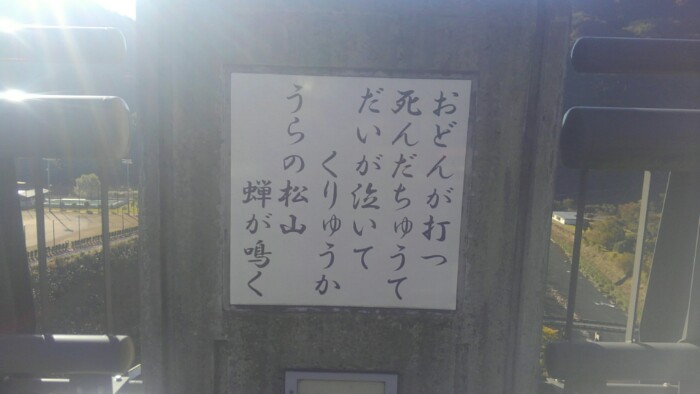 おどんが打つ
死んだちゅうて
だいが泣いて
くりゅうか
うらの松山
蝉が鳴く